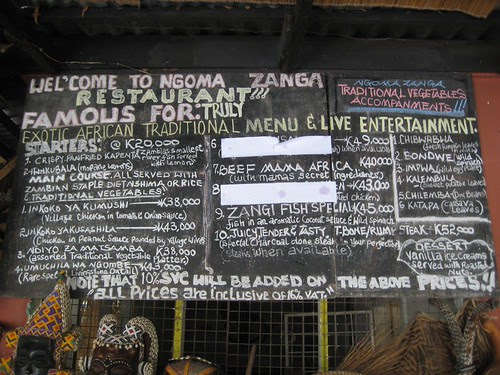 WEL'COME TO NGOMA ZANGA
RESTAURANT!!!
FAMOUS FOR: TRULY
EXOTIC AFRICAN TRADITIONAL MENU & LIVE ENTERTAINMENT.
STARTERS: @ K20,000
1. CRISPY PANFRIED KAPENTA
2. IFINKUBALA (mopane worms)
MAIN COURSE. ALL SERVED WITH
ZAMBIAN STAPLE DIET NSHIMA OR RICE
2 TRADITIONAL VEGETABLES
1. INKOKO YA KUMUSHI K38,000
(Village chicken in tomatoe, Onion sauce)
K43,000
(Chicken in Peanut Sauce Pounded by Village Wives)
3. NDIYO ZA MATSAMBA K38,000
(assorted Traditional Vegetable Platter)
K43,000
6 K49,000
K40000
7. BEEF /MAMA AFRICA
(with mamas secret ingredients)
8 K43,000
9. ZANGI FISH SPECIAL K45,000
fish in an aromatic Coconut Sauce
10. JUICY, TENDER & TASTY T.BONE/RUMP STEAK K52,000
(Special Charcoal stone steak in your perfection)
(steaks when available)
NGOMA ZANGA
TRADITIONAL VEGETABLES
ACCOMPANMENTS!!!
1. CHIBWABWA
2. BONDWE
3. IMPWA
4. KALEMBULA
(Sweet potatoe leaves)
5. CHILEMBA
6 KATAPA (Cassava Leaves)
DESSERT
Vanilla icecreams
served with Roasted
Nuts
NOTE THAT 10% SVC WILL BE ADDED ON THE ABOVE PRICES!!
"all Prices are inclusive of 16% VAT."